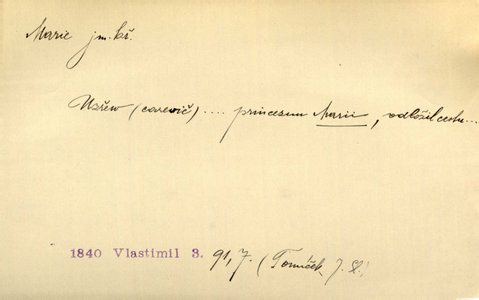 Marie jm. kř.
Uzřew (carevič) .... princeznu Marii, odložil cestu...
1840 Vlastimil 3. 91,7. (Tomíček, J. Sl.)